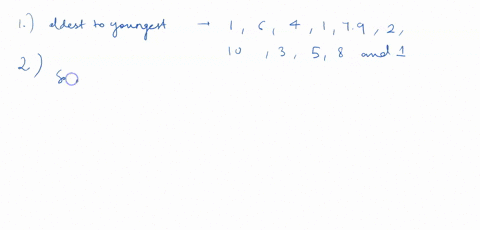 1.) eldest to youngest → 1, 6, 4, 1, 7.9, 2,
10, 3, 5, 8 and 1
2)
So